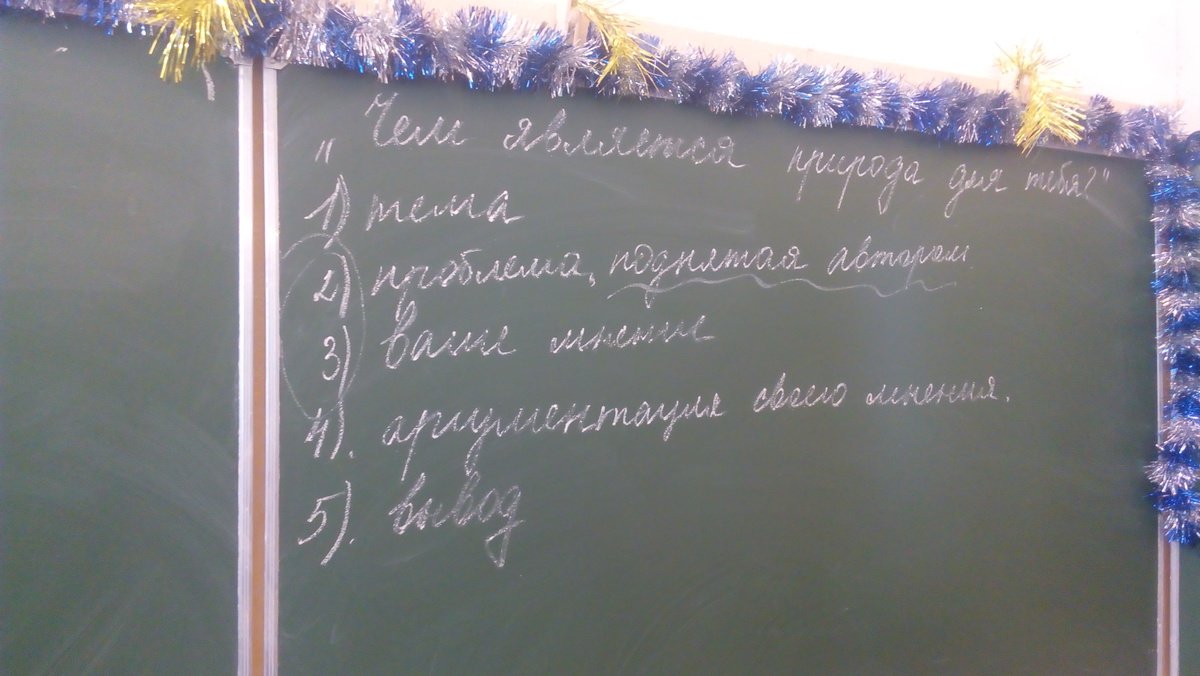 „Чем является природа для тебя?"
1) тема
2) проблема, поднятая автором
3) ваше мнение
4). аргументация своего мнения.
5). вывод